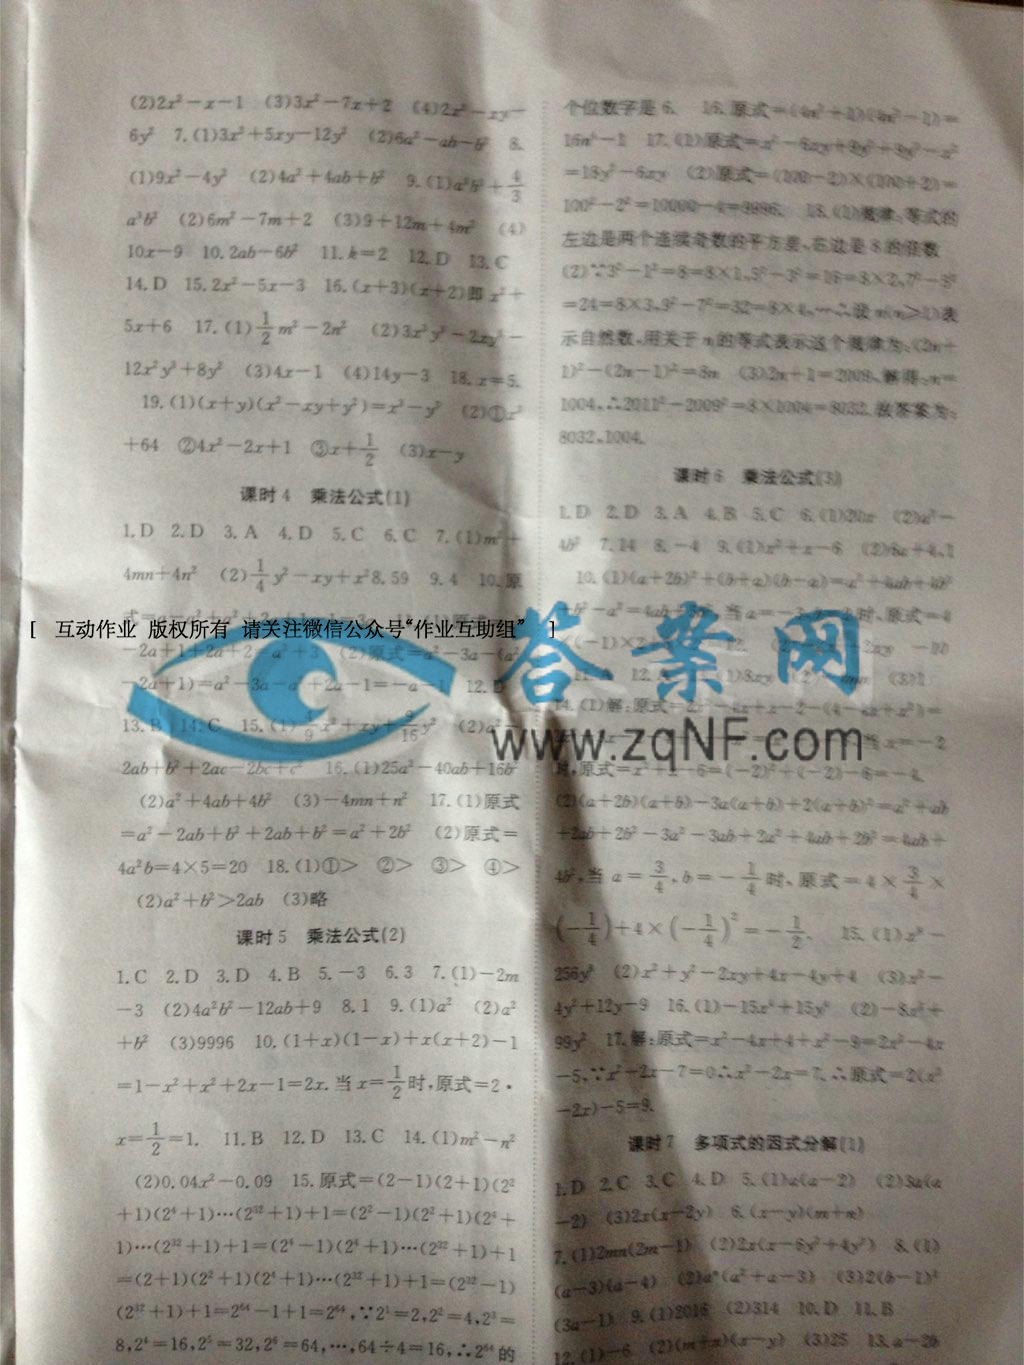 (2)2x²-x-1 (3)3x²-7x+2 (4)2x²-xy-
6y² 7.(1)3x²+5xy-12y² (2)6a²-ab-b² 8.
(1)9x²-4y² (2)4a²+4ab+b² 9.(1)a³b²+4/3
a³b² (2)6m²-7m+2 (3)9+12m+4m² (4)
10x-9 10.2ab-6b² 11.k=2 12.D 13.C
14.D 15.2x²-5x-3 16.(x+3)(x+2)即x²+
5x+6 17.(1)1/2m²-2n² (2)3x³y³-2xy²-
12x²y³+8y² (3)4x-1 (4)14y-3 18.x=5.
19.(1)(x+y)(x²-xy+y²)=x³-y³ (2)①x³
+64 ②4x²-2x+1 ③x+1/2 (3)x-y
课时4 乘法公式(1)
1.D 2.D 3.A 4.D 5.C 6.C 7.(1)m²+
4mn+4n² (2)1/4y²-xy+x² 8.59 9.4 10.原
[ 互动作业 版权所有 请关注微信公众号“作业互助组” ]
-2a+1+2a+2=a²+3 (2)原式=a²-3a-(a²
-2a+1)=a²-3a-a²+2a-1=-a-1 12.D
13.B 14.C 15.(1)4/9x²+xy+9/16y² (2)a²-
2ab+b²+2ac-2bc+c² 16.(1)25a²-40ab+16b²
(2)a²+4ab+4b² (3)-4mn+n² 17.(1)原式
=a²-2ab+b²+2ab+b²=a²+2b² (2)原式=
4a²b=4×5=20 18.(1)①> ②> ③> ④>
(2)a²+b²>2ab (3)略
课时5 乘法公式(2)
1.C 2.D 3.D 4.B 5.-3 6.3 7.(1)-2m
-3 (2)4a²b²-12ab+9 8.1 9.(1)a² (2)a²
+b² (3)9996 10.(1+x)(1-x)+x(x+2)-1
=1-x²+x²+2x-1=2x.当x=1/2时,原式=2·
x=1/2=1. 11.B 12.D 13.C 14.(1)m²-n²
(2)0.04x²-0.09 15.原式=(2-1)(2+1)(2²
+1)(2⁴+1)…(2³²+1)+1=(2²-1)(2²+1)(2⁴+
1)…(2³²+1)+1=(2⁴-1)(2⁴+1)…(2³²+1)+1
=(2+1)(2²+1)(2⁴+1)…(2³²+1)+1=(2³²-1)
(2³²+1)+1=2⁶⁴-1+1=2⁶⁴,∵2¹=2,2²=4,2³=
8,2⁴=16,2⁵=32,2⁶=64,…,64÷4=16,∴2⁶⁴的
个位数字是6. 16.原式=(4n²+1)(4n²-1)=
16n⁴-1 17.(1)原式=x²-6xy+9y²+9y²-x²
=18y²-6xy (2)原式=(100-2)×(100+2)=
100²-2²=10000-4=9996. 18.(1)规律:等式的
左边是两个连续奇数的平方差,右边是8的倍数
(2)∵3²-1²=8=8×1,5²-3²=16=8×2,7²-5²
=24=8×3,9²-7²=32=8×4,…∴设n(n≥1)表
示自然数,用关于n的等式表示这个规律为:(2n+
1)²-(2n-1)²=8n (3)2n+1=2009,解得:n=
1004,∴2011²-2009²=8×1004=8032.故答案为:
8032,1004.
课时6 乘法公式(3)
1.D 2.D 3.A 4.B 5.C 6.(1)20x (2)a²-
4b² 7.14 8.-4 9.(1)x²+x-6 (2)6a+4.1
10.(1)(a+2b)²+(b+a)(b-a)=a²+4ab+4b²
答案网
www.zqNF.com
时,原式=x²+x-6=(-2)²+(-2)-6=-4.
(2)(a+2b)(a+b)-3a(a+b)+2(a+b)²=a²+ab
+2ab+2b²-3a²-3ab+2a²+4ab+2b²=4ab+
4b²,当a=3/4,b=-1/4时,原式=4×3/4×
(-1/4)+4×(-1/4)²=-1/2. 15.(1)x⁸-
256y⁸ (2)x²+y²-2xy+4x-4y+4 (3)x²-
4y²+12y-9 16.(1)-15x⁴+15y⁴ (2)-8x²+
99y² 17.解:原式=x²-4x+4+x²-9=2x²-4x
-5,∵x²-2x-7=0∴x²-2x=7,∴原式=2(x²
-2x)-5=9.
课时7 多项式的因式分解(1)
1.D 2.C 3.C 4.D 5.(1)a(a-2) (2)3a(a
-2) (3)2x(x-2y) 6.(x-y)(m+n)
7.(1)2mn(2m-1) (2)2x(x-6y²+4y³) 8.(1)
(a-3)(a-4) (2)aⁿ(a²+a-3) (3)2(b-1)²
(3a-1) 9.(1)2016 (2)314 10.D 11.B
12.(1)-6 (2)(m+x)(x-y) (3)25 13.a-2b